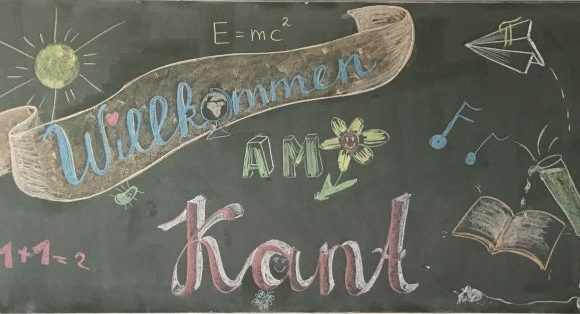 E=mc²
π
Willkommen
AM
Kant
1+1=2